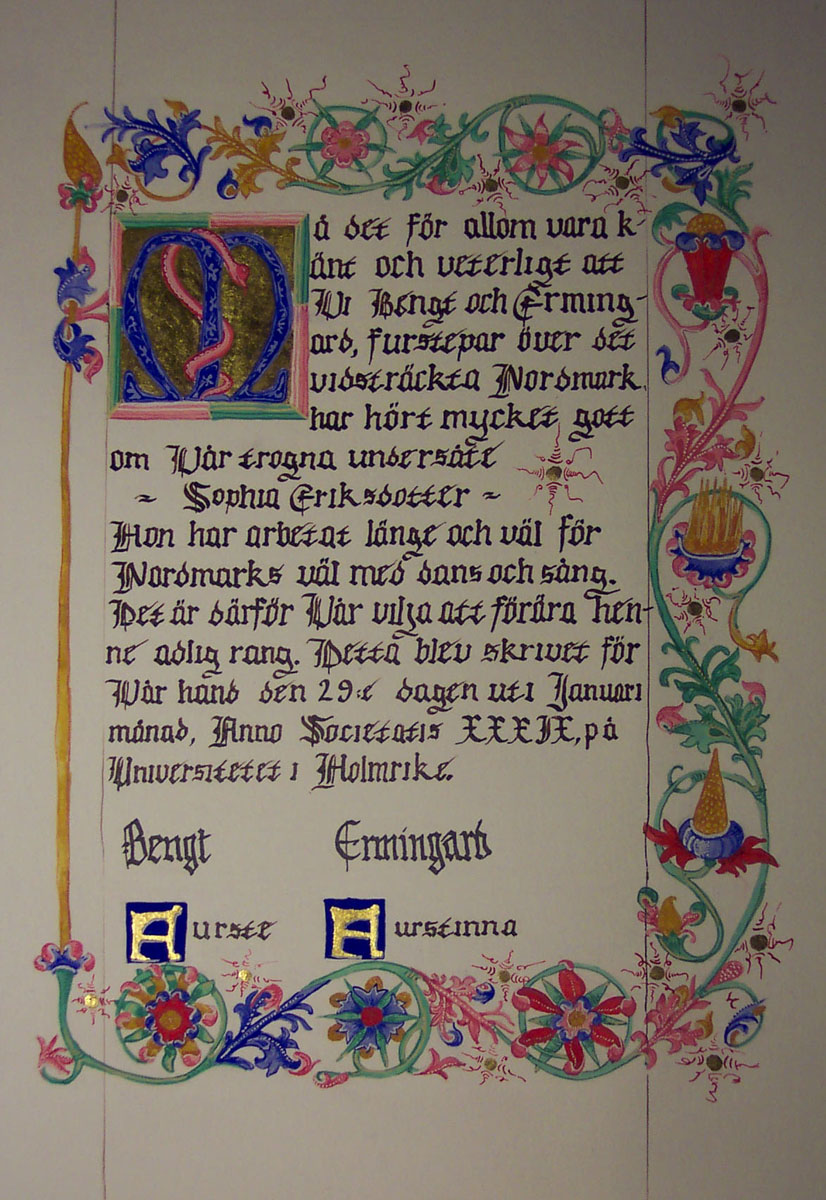 Må det för allom vara k-
änt och veterligt att
Vi Bengt och Erming-
ard, furstepar över det
vidsträckta Nordmark,
har hört mycket gott
om Vår trogna undersåte
~ Sophia Eriksdotter ~
Hon har arbetat länge och väl för
Nordmarks väl med dans och sång.
Det är därför Vår vilja att förära hen-
ne adlig rang. Detta blev skrivet för
Vår hand den 29:e dagen uti Januari
månad, Anno Societatis XXXIX, på
Universitetet i Holmrike.
Bengt Ermingard
Furste Furstinna